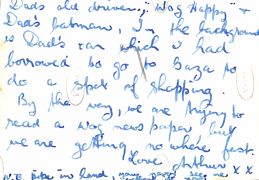 Dad's old driver, "Wog Happy" &
Dad's batman, In the background
is Dad's car which I had
borrowed to go to Gaza to
do a spot of shopping.
By the way, we are trying to
read a wog newspaper but
we are getting no where fast.
Love Arthur x x
pipe in hand,